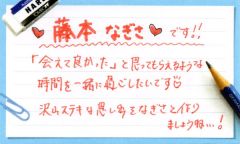 藤本 なぎさ です!!
「会えて良かった」と思ってもらえるような
時間を一緒に過ごしたいです♡
沢山ステキな思い出をなぎさと作り
ましょうね…!